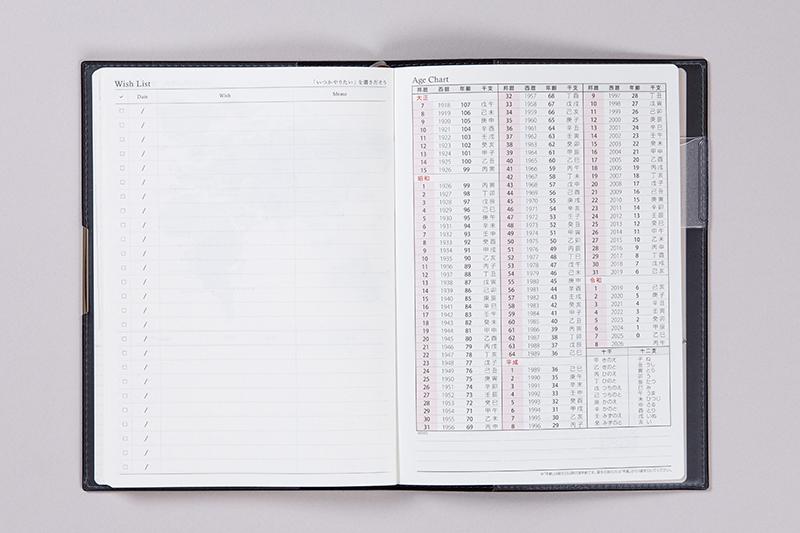 Wish List
「いつかやりたい」を書きだそう
✓ Date Wish Memo
Age Chart
邦暦 西暦 年齢 干支
大正
7 1918 107 戊午
8 1919 106 己未
9 1920 105 庚申
10 1921 104 辛酉
11 1922 103 壬戌
12 1923 102 癸亥
13 1924 101 甲子
14 1925 100 乙丑
15 1926 99 丙寅
昭和
1 1926 99 丙寅
2 1927 98 丁卯
3 1928 97 戊辰
4 1929 96 己巳
5 1930 95 庚午
6 1931 94 辛未
7 1932 93 壬申
8 1933 92 癸酉
9 1934 91 甲戌
10 1935 90 乙亥
11 1936 89 丙子
12 1937 88 丁丑
13 1938 87 戊寅
14 1939 86 己卯
15 1940 85 庚辰
16 1941 84 辛巳
17 1942 83 壬午
18 1943 82 癸未
19 1944 81 甲申
20 1945 80 乙酉
21 1946 79 丙戌
22 1947 78 丁亥
23 1948 77 戊子
24 1949 76 己丑
25 1950 75 庚寅
26 1951 74 辛卯
27 1952 73 壬辰
28 1953 72 癸巳
29 1954 71 甲午
30 1955 70 乙未
31 1956 69 丙申
邦暦 西暦 年齢 干支
32 1957 68 丁酉
33 1958 67 戊戌
34 1959 66 己亥
35 1960 65 庚子
36 1961 64 辛丑
37 1962 63 壬寅
38 1963 62 癸卯
39 1964 61 甲辰
40 1965 60 乙巳
41 1966 59 丙午
42 1967 58 丁未
43 1968 57 戊申
44 1969 56 己酉
45 1970 55 庚戌
46 1971 54 辛亥
47 1972 53 壬子
48 1973 52 癸丑
49 1974 51 甲寅
50 1975 50 乙卯
51 1976 49 丙辰
52 1977 48 丁巳
53 1978 47 戊午
54 1979 46 己未
55 1980 45 庚申
56 1981 44 辛酉
57 1982 43 壬戌
58 1983 42 癸亥
59 1984 41 甲子
60 1985 40 乙丑
61 1986 39 丙寅
62 1987 38 丁卯
63 1988 37 戊辰
64 1989 36 己巳
平成
1 1989 36 己巳
2 1990 35 庚午
3 1991 34 辛未
4 1992 33 壬申
5 1993 32 癸酉
6 1994 31 甲戌
7 1995 30 乙亥
8 1996 29 丙子
邦暦 西暦 年齢 干支
9 1997 28 丁丑
10 1998 27 戊寅
11 1999 26 己卯
12 2000 25 庚辰
13 2001 24 辛巳
14 2002 23 壬午
15 2003 22 癸未
16 2004 21 甲申
17 2005 20 乙酉
18 2006 19 丙戌
19 2007 18 丁亥
20 2008 17 戊子
21 2009 16 己丑
22 2010 15 庚寅
23 2011 14 辛卯
24 2012 13 壬辰
25 2013 12 癸巳
26 2014 11 甲午
27 2015 10 乙未
28 2016 9 丙申
29 2017 8 丁酉
30 2018 7 戊戌
31 2019 6 己亥
令和
1 2019 6 己亥
2 2020 5 庚子
3 2021 4 辛丑
4 2022 3 壬寅
5 2023 2 癸卯
6 2024 1 甲辰
7 2025 0 乙巳
8 2026 丙午
十干 十二支
甲 きのえ 子 ね
乙 きのと 丑 うし
丙 ひのえ 寅 とら
丁 ひのと 卯 う
戊 つちのえ 辰 たつ
己 つちのと 巳 み
庚 かのえ 午 うま
辛 かのと 未 ひつじ
壬 みずのえ 申 さる
癸 みずのと 酉 とり
戌 いぬ
亥 い
MEMO